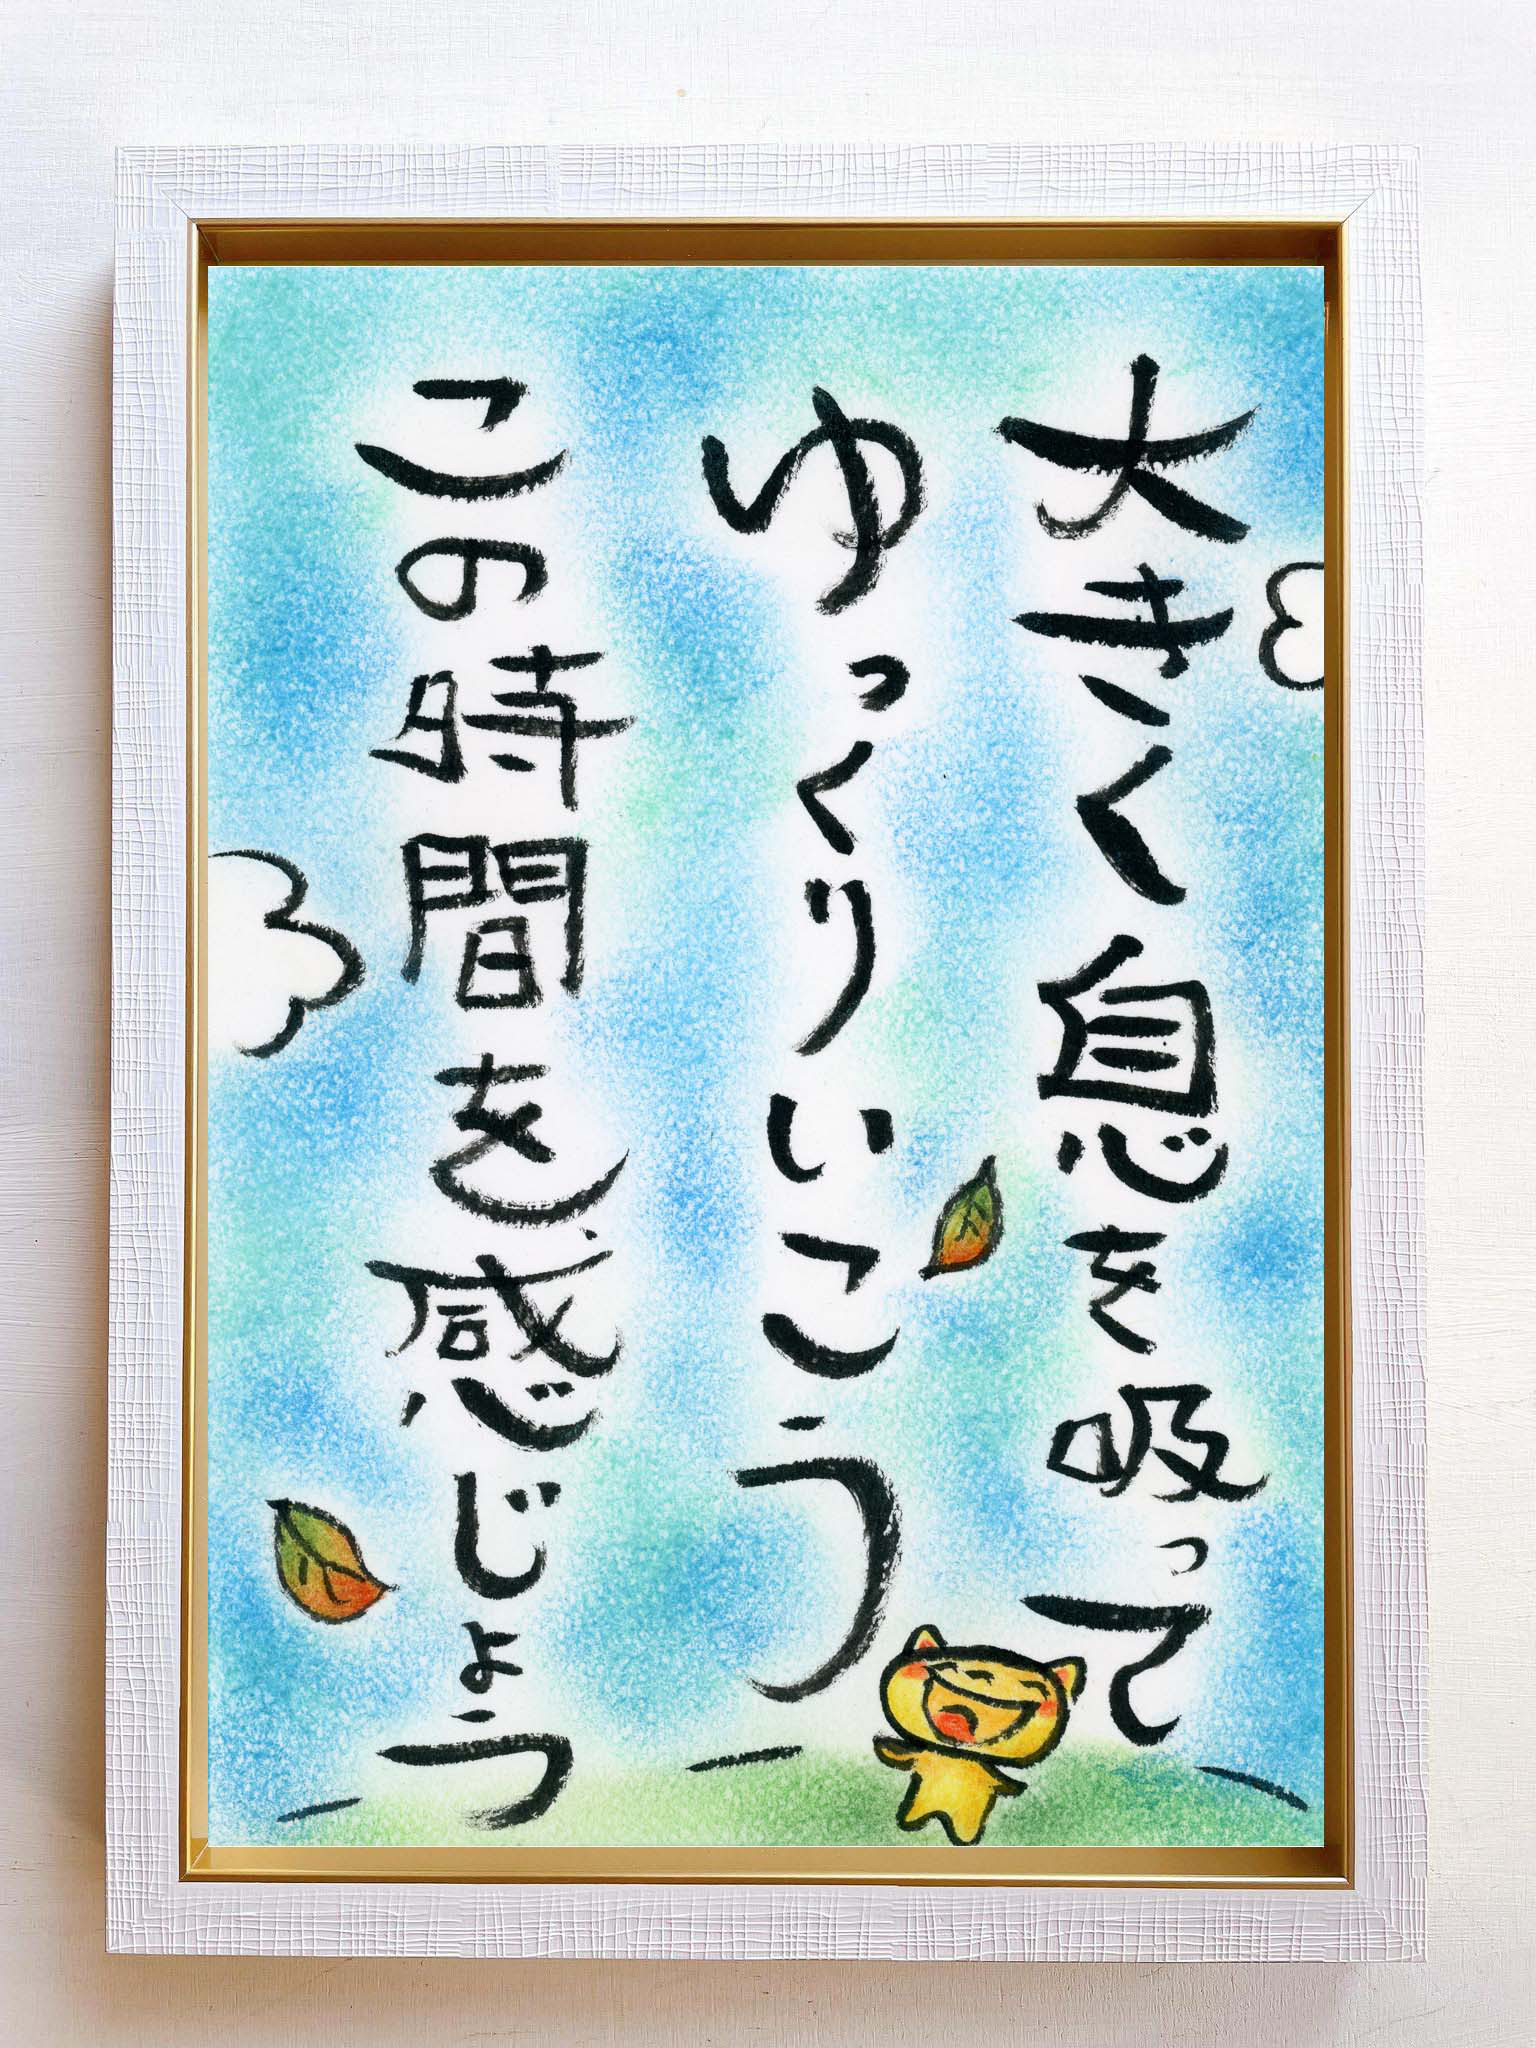 大きく息を吸って
ゆっくりいこう
この時間を感じよう